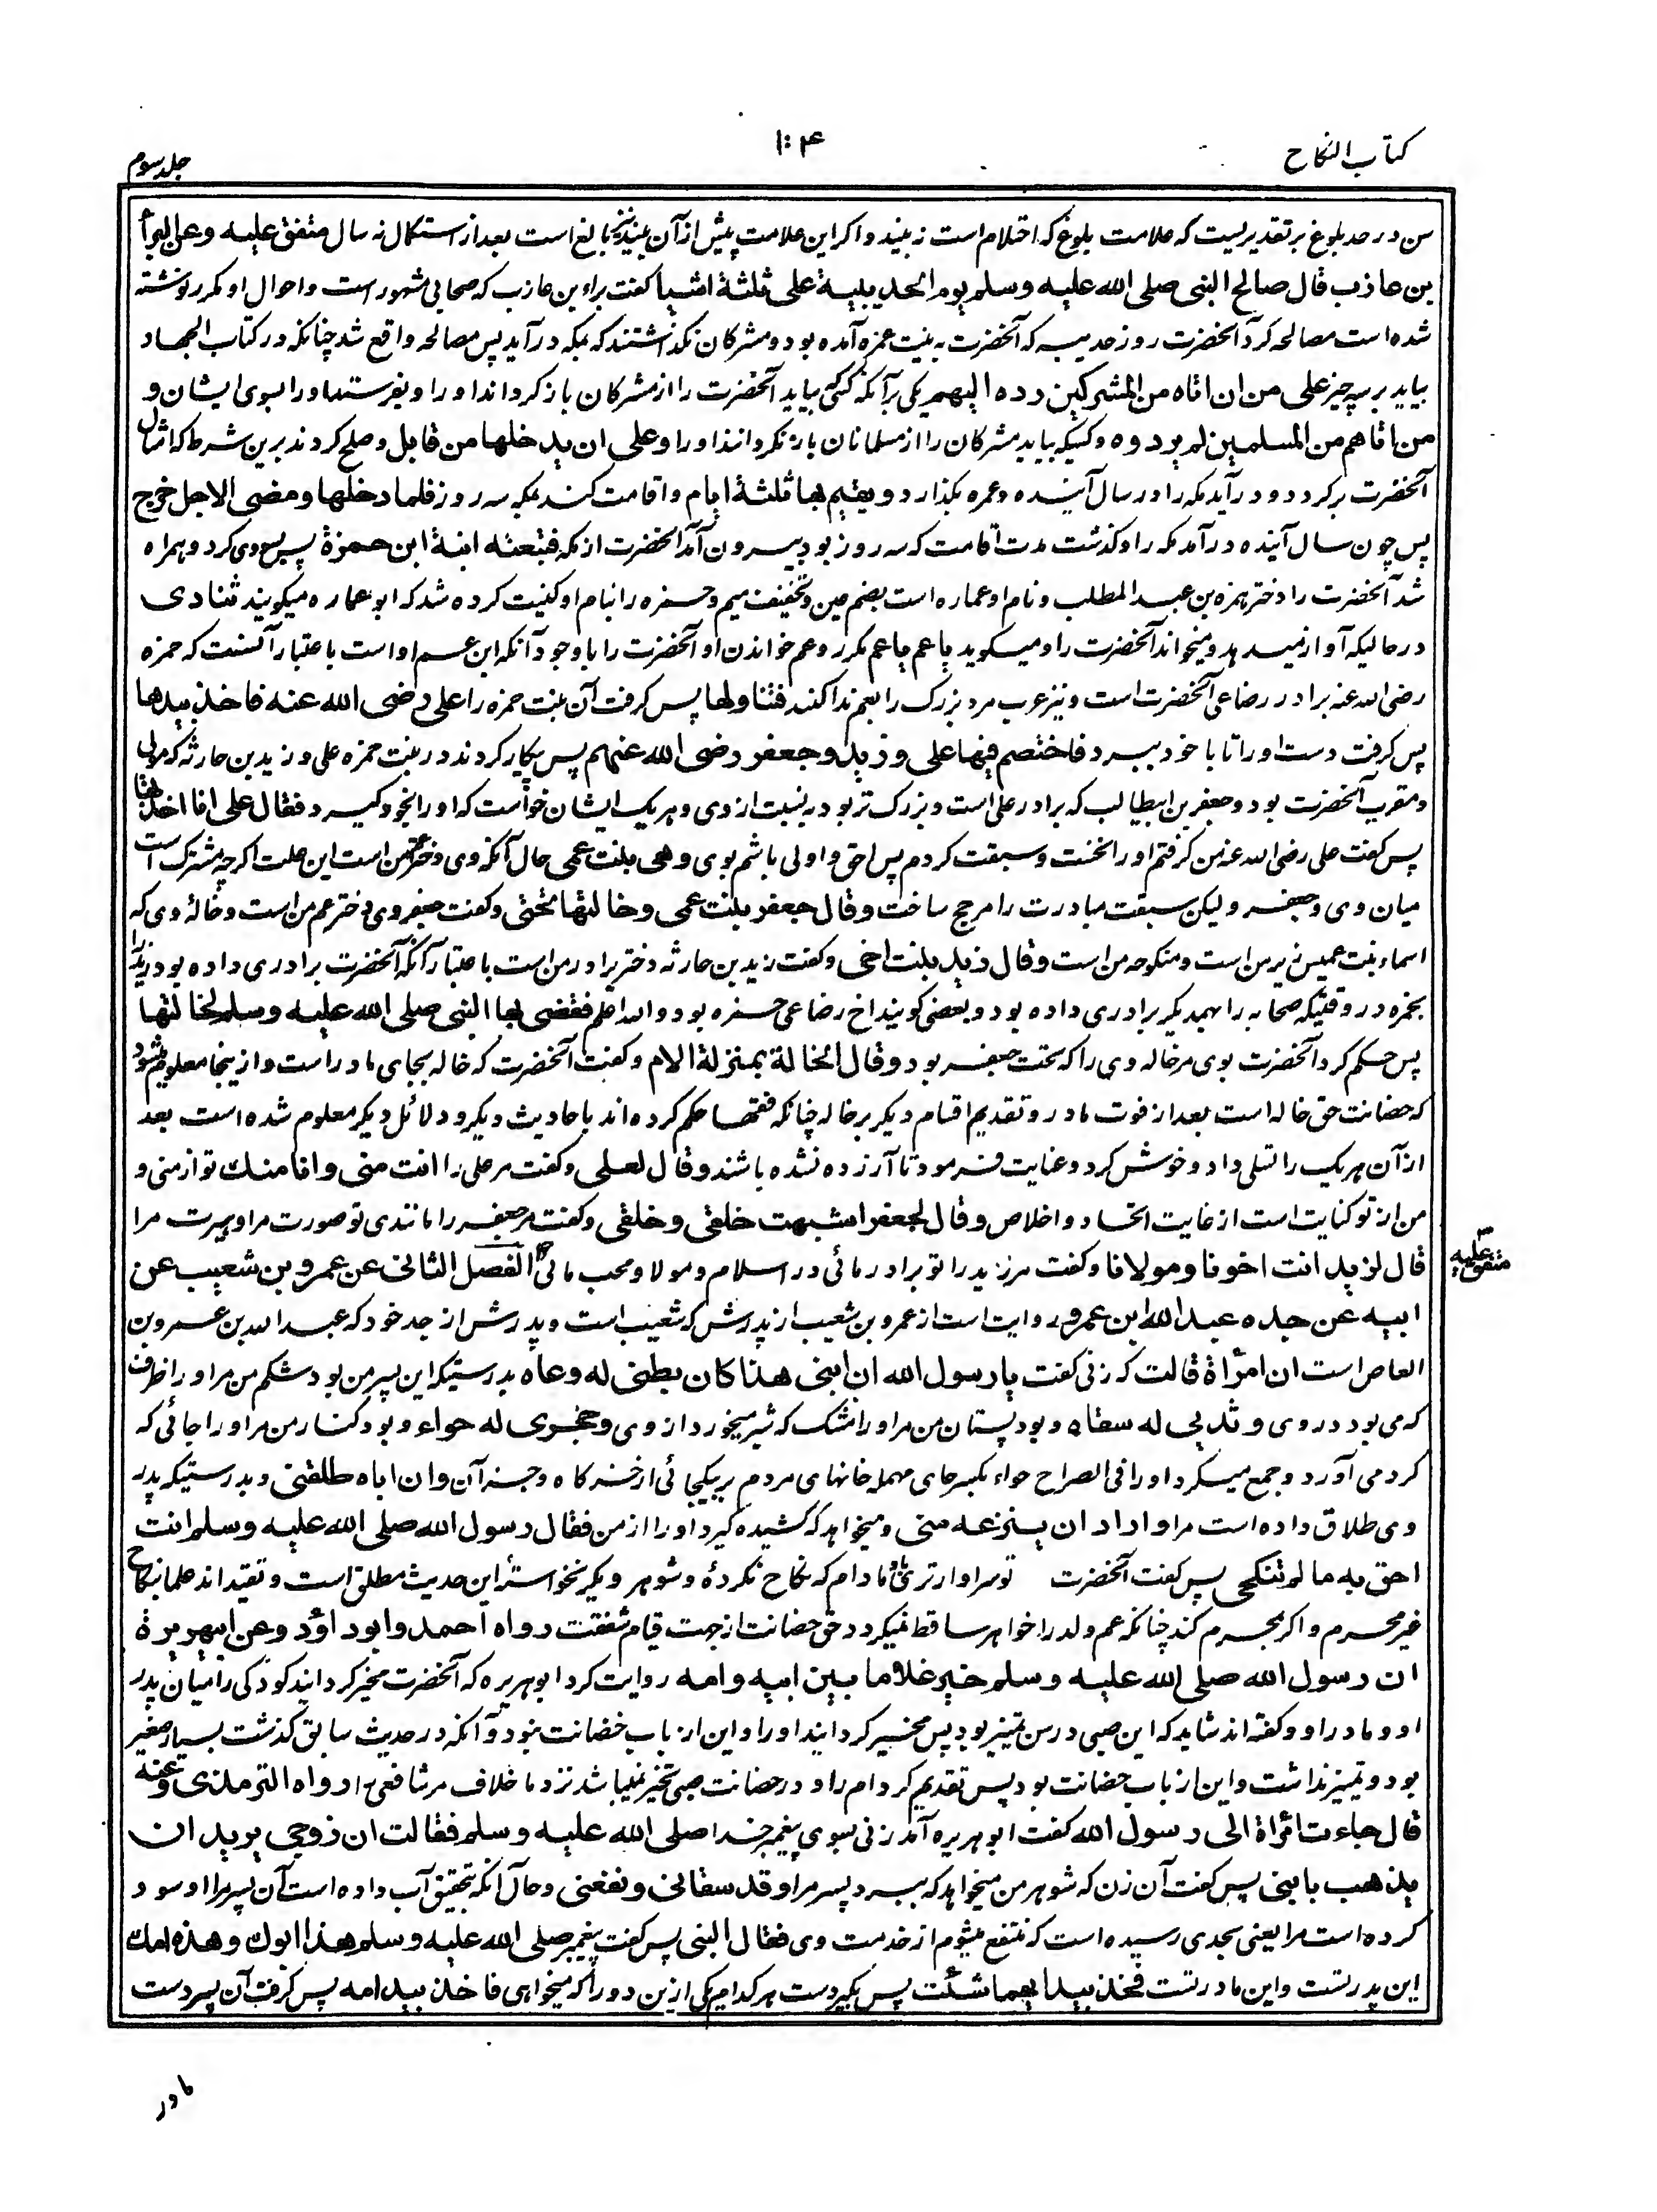 کتاب النکاح
۱۰۴
جلد سوم
سن در حد بلوغ بر تقدیریست که علامت بلوغ که احتلام است نه بیند و اکر این علامت پیش از آن بیند نیز بالغ است بعد از استکمال نه سال متفق علیه وعن البرأ
بن عازب قال صالح النبی صلی الله علیه وسلم یوم الحدیبیة علی ثلثة اشیا کفت براء بن عازب که صحابی مشهور است و احوال او مکرر نوشته
شده است مصالحه کرد آنحضرت روز حدیبیه که آنحضرت به نیت عمره آمده بود و مشرکان نکذاشتند که بمکه در آید پس مصالحه واقع شد چنانکه در کتاب الجهاد
بیاید بر سه چیز علی من ان اتاه من المشرکین رده الیهم یکی بر آنکه کسی بیاید آنحضرت را از مشرکان باز کرداند او را و بفرستد او را بسوی ایشان و
من اتاهم من المسلمین لم یردوه و کسیکه بیاید مشرکان را از مسلمانان باز نکردانند او را وعلی ان یدخلها من قابل و صلح کردند برین شرط که امثال
آنحضرت برکردد و در آید مکه را در سال آینده و عمره بکذارد ویقیم بها ثلثة ایام و اقامت کند بمکه سه روز فلما دخلها ومضی الاجل خرج
پس چون سال آینده در آمد مکه را و کذشت مدت اقامت که سه روز بود بیرون آمد آنحضرت از مکه فتبعته ابنة ابن حمزة پس پیروی کرد و همراه
شد آنحضرت را دختر حمزه بن عبد المطلب و نام او عماره است بضم عین و تخفیف میم و حمزه را بنام او کنیت کرده شد که ابو عماره میکویند تنادی
در حالیکه آواز میدهد و میخواند آنحضرت را و میکوید یا عم یا عم مکرر و عم خواندن او آنحضرت را با وجود آنکه ابن عم او است باعتبار آنست که حمزه
رضی الله عنه برادر رضاعی آنحضرت است و نیز عرب مرد بزرک را بعم ندا کنند فتناولها پس کرفت آن بنت حمزه را علی رضی الله عنه فاخذ بیدها
پس کرفت دست او را تا با خود ببرد فاختصم فیها علی وزید وجعفر رضی الله عنهم پس پیکار کردند در بنت حمزه علی و زید بن حارثه که مولی
و مقرب آنحضرت بود و جعفر بن ابیطالب که برادر علی است و بزرک تر بود به نسبت از وی و هر یک ایشان خواست که او را بخود کیرد فقال علی انا اخذتها
پس کفت علی رضی الله عنه من کرفتم او را نخست و سبقت کردم پس احق و اولی باشم بوی وهی بنت عمی حال آنکه وی دختر عم من است این علت اکرچه مشترک است
میان وی و جعفر ولیکن سبقت مبادرت را مرجح ساخت وقال جعفر بنت عمی وخالتها تحتی و کفت جعفر وی دختر عم من است و خالۀ وی که
اسماء بنت عمیس زیر من است و منکوحه من است وقال زید بنت اخی و کفت زید بن حارثه دختر برادر من است باعتبار آنکه آنحضرت برادری داده بود زید را
بحمزه در وقتیکه صحابه را بهمدیکر برادری داده بود و بعضی کویند اخ رضاعی حمزه بود والله اعلم فقضی بها النبی صلی الله علیه وسلم لخالتها
پس حکم کرد آنحضرت بوی مر خاله وی را که تحت جعفر بود وقال الخالة بمنزلة الام و کفت آنحضرت که خاله بجای مادر است و از ینجا معلوم میشود
که حضانت حق خاله است بعد از فوت مادر و تقدیم اقسام دیکر بر خاله چنانکه فقها حکم کرده اند باحادیث دیکر و دلائل دیکر معلوم شده است بعد
از آن هر یک را تسلی داد و خوش کرد و عنایت فرمود تا آزرده نشده باشند وقال لعلی و کفت مر علی را انت منی وانا منک تو از منی و
من از تو کنایت است از غایت اتحاد و اخلاص وقال لجعفر اشبهت خلقی وخلقی و کفت مر جعفر را مانندی تو صورت مرا و سیرت مرا
قال لزید انت اخونا ومولانا و کفت مر زید را تو برادر مائی در اسلام و مولا و محب مائی الفصل الثانی عن عمرو بن شعیب عن
متفق علیه
ابیه عن جده عبد الله ابن عمرو روایت است از عمرو بن شعیب از پدرش که شعیب است و پدرش از جد خود که عبد الله بن عمرو بن
العاص است ان امرأة قالت که زنی کفت یا رسول الله ان ابنی هذا کان بطنی له وعاه بدرستیکه این پسر من بود شکم من مر او را ظرف
که می بود در وی وثدیی له سقاه و بود پستان من مر او را مشک که شیر میخورد از وی وحجری له حواء و بود کنار من مر او را جائی که
کرد می آورد و جمع میکرد او را فی الصراح حواء بکسر حای مهمله خانهای مردم بریکجائی از خرکاه و جز آن وان اباه طلقنی و بدرستیکه پدر
وی طلاق داده است مرا واراد ان ینزعه منی و میخواهد که کشیده کیرد او را از من فقال رسول الله صلی الله علیه وسلم انت
احق به ما لم تنکحی پس کفت آنحضرت تو سزاوارتری باو مادام که نکاح نکردۀ و شوهر دیکر نخواستۀ این حدیث مطلق است و تقیید اند علما بنکاح
غیر محرم و اکر بمحرم کند چنانکه عم ولد را خواهر ساقط نمیکردد حق حضانت از جهت قیام شفقت رواه احمد وابوداؤد وعن ابی هریرة
ان رسول الله صلی الله علیه وسلم خیر غلاما بین ابیه وامه روایت کرد ابو هریره که آنحضرت مخیر کردانید کودکی را میان پدر
او و مادر او و کفته اند شاید که این صبی در سن تمییز بود پس مخیر کردانید او را و این از باب حضانت نبود و آنکه در حدیث سابق کذشت بسیار صغیر
بود و تمییز نداشت و این از باب حضانت بود پس تقدیم کرد ام را و در حضانت صبی تخییر نمیباشد نزد ما خلاف مر شافعی را رواه الترمذی وعنه
قال جاءت امرأة الی رسول الله کفت ابو هریره آمد زنی بسوی پیغمبر خدا صلی الله علیه وسلم فقالت ان زوجی یرید ان
یذهب بابنی پس کفت آن زن که شوهر من میخواهد که ببرد پسر مرا وقد سقانی ونفعنی و حال آنکه بتحقیق آب داده است آن پسر مرا و سود
کرده است مرا یعنی بحدی رسیده است که منتفع میشوم از خدمت وی فقال النبی پس کفت پیغمبر صلی الله علیه وسلم هذا ابوک وهذه امک
این پدر تست و این مادر تست فخذ بید ایهما شئت پس بکیر دست هر کدام یکی ازین دو را که میخواهی فاخذ بید امه پس کرفت آن پسر دست
مادر